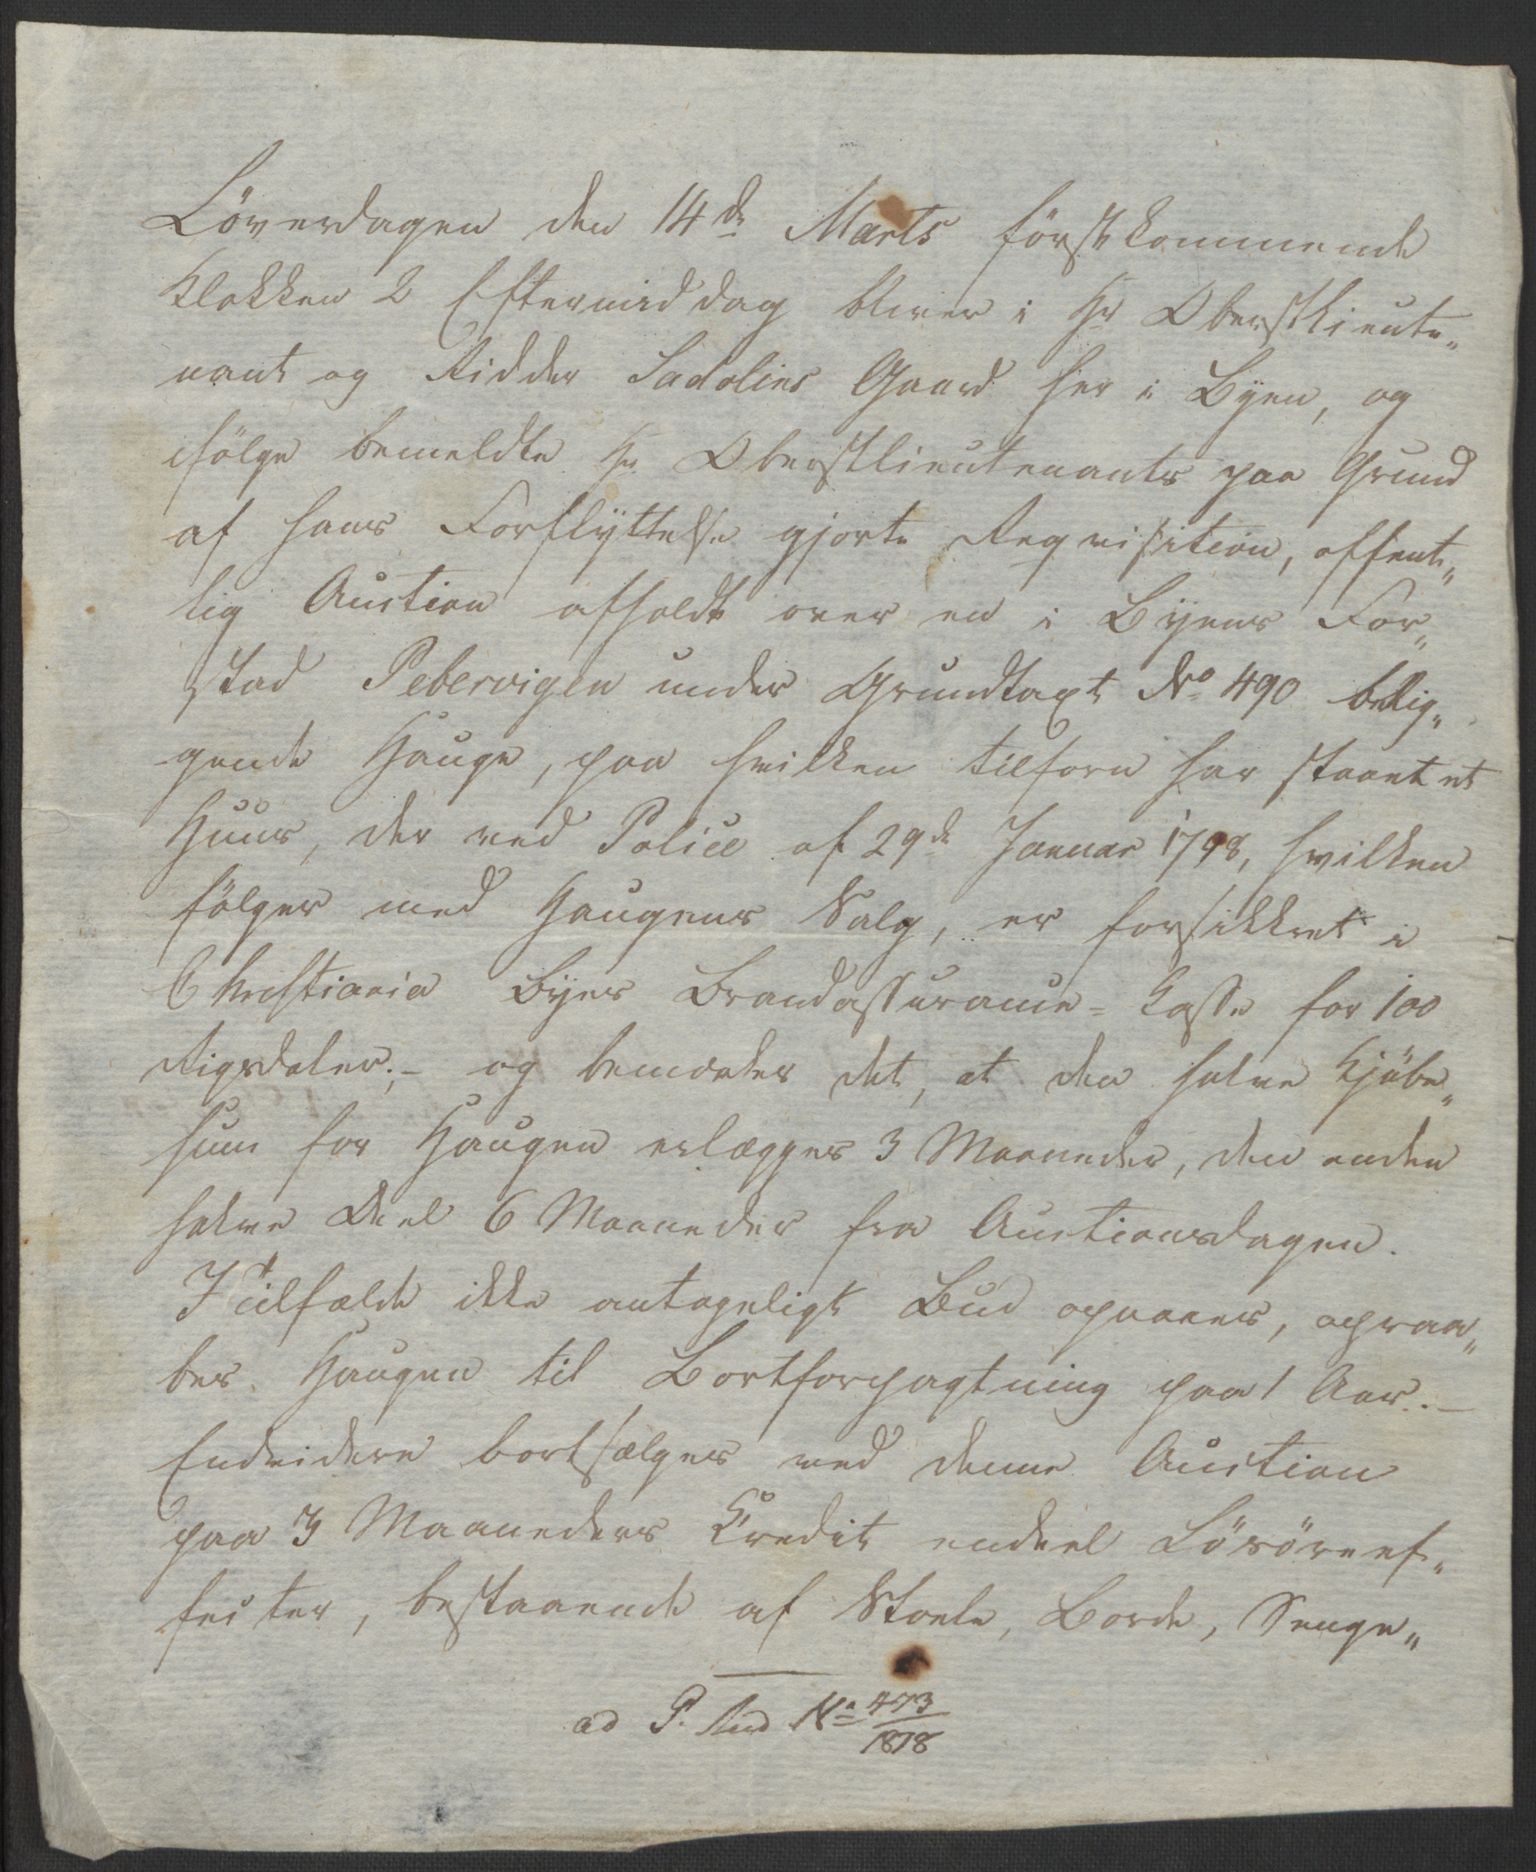 Löverdagen den 14de Marts förstkommende
Klokken 2 Eftermiddag bliver i Hr Oberstlieute„
nant og Ridder Sadolins Gaard her i Byen, og
ifölge bemeldte Hr Oberstlieutenants paa Grund
af hans Forflyttelse gjorte Reqvisition, offent„
lig Auction afholdt over en i Byens For„
stad Pebervigen under Grundtaxt No 490 belig„
gende Hauge, paa hvilken tilforn har staaet et
Huus, der ved Police af 29de Januar 1798, hvilken
fölger med Haugens Salg, er forsikkret i
Christiania Byes Brandassurance=Casse for 100
Rigsdaler; – og bemærkes det, at den halve Kjöbe„
sum for Haugen erlægges 3 Maaneder, den anden
halve Deel 6 Maaneder fra Auctionsdagen.
I tilfælde ikke antageligt Bud opnaaes, opraa„
bes Haugen til Bortforpagtning paa 1 Aar. –
Endvidere bortsælges ved denne Auction
paa 3 Maaneders Credit endeel Lösöreef„
fecter, bestaaende af Stoele, Borde, Senge„
ad P. No 473/1818